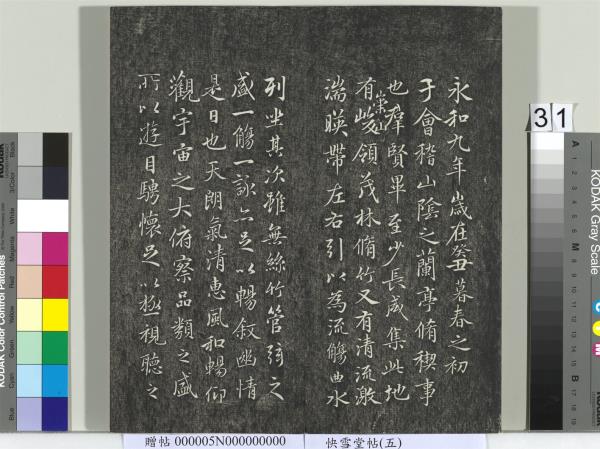 永和九年歲在癸丑暮春之初會
于會稽山陰之蘭亭脩禊事
也羣賢畢至少長咸集此地
有崇山峻領茂林脩竹又有清流激
湍暎帶左右引以為流觴曲水
列坐其次雖無絲竹管弦之
盛一觴一詠亦足以暢敘幽情
是日也天朗氣清惠風和暢仰
觀宇宙之大俯察品類之盛
所以遊目騁懷足以極視聽之
31
KODAK Color Control Patches
Blue
Cyan
Green
Yellow
Red
Magenta
White
3/Color
Black
KODAK Gray Scale
A
1
2
3
4
5
6
M
8
9
10
11
12
13
14
15
B
17
18
19
C
Y
M
贈帖 000005N000000000
快雪堂帖(五)